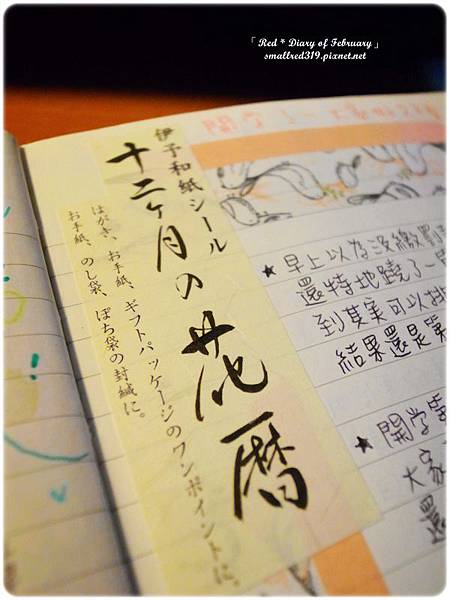 「 Red * Diary of February 」
smallred319.pixnet.net
伊予和紙シール
十二ヶ月の花暦
はがき、お手紙、ギフトパッケージのワンポイントに。
お手紙、のし袋、ぽち袋の封緘に。
開学了~大家
★ 早上以為沒繳
還特地蹺了一
到其實可以排
結果還是
★ 開学
大家
還